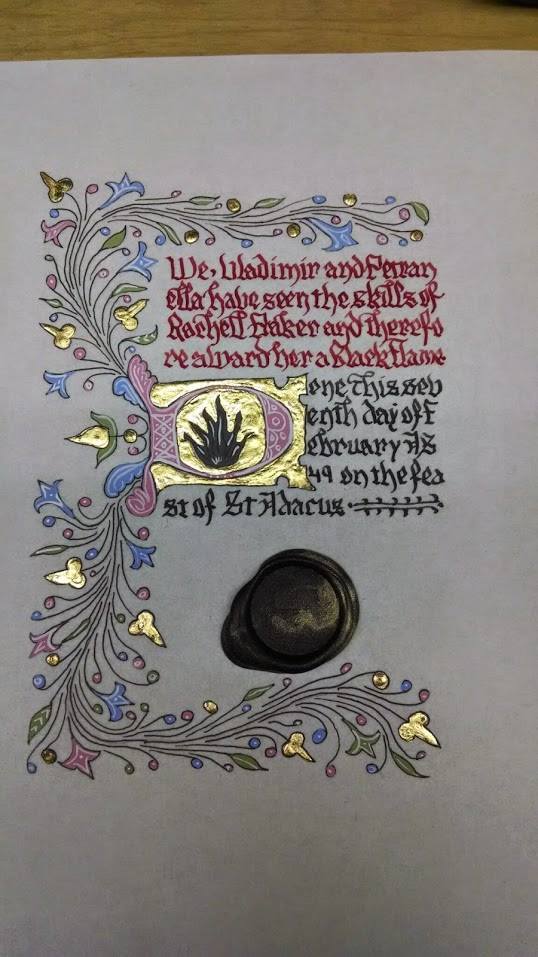 We, Vladimir and Petran
ella have seen the skills of
Rachell and therefo
re award her a Black Flame
Done this sev
enth day of F
ebruary AS
49 on the fea
st of St Adacus